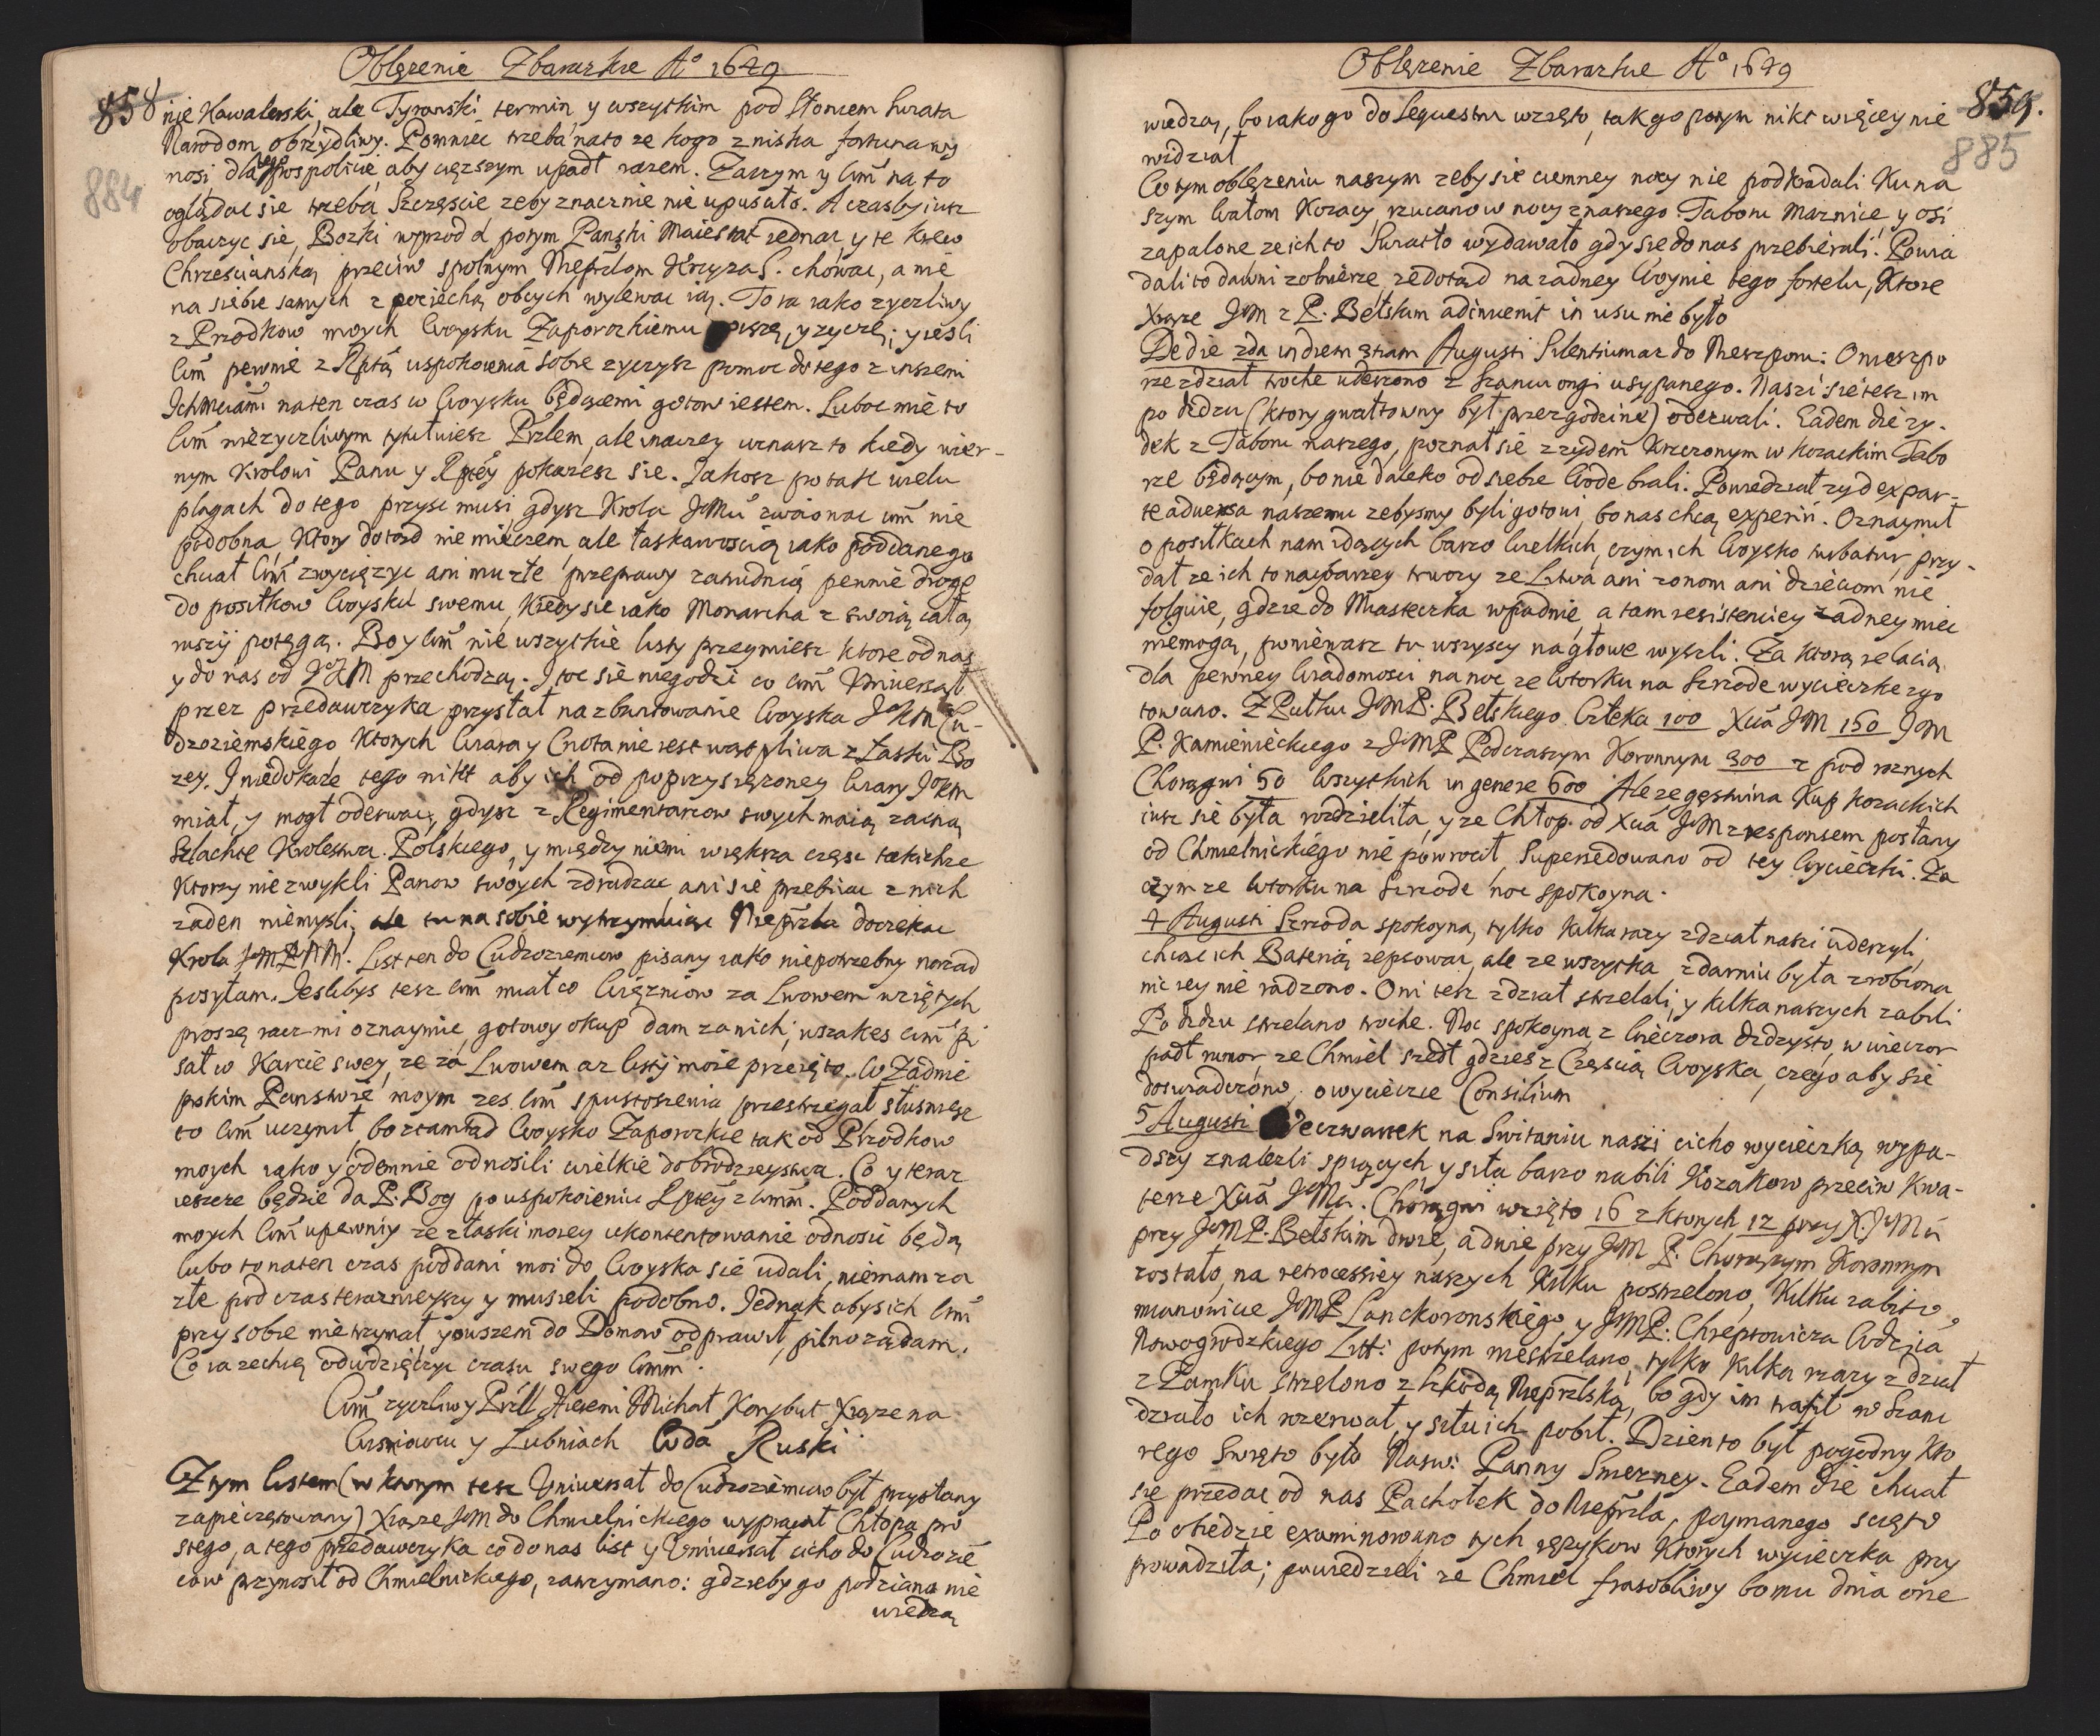 Oblęzenie Zbarazkie Aº 1649
858
884
nie Kawalerski, ale Tyranski termin, y wszytkim pod słoncem swiata
Narodom obrzydliwy. Pomniec trzeba na to ze kogo z niska fortuna wy
nosi, dla tego pospolicie, aby cięzszym upadł razem. Zaczym y Wm̃ na to
oglądac się trzeba Szczęscie zeby znacznie nie upuscało. A czas by iusz
obaczyc się, Bozki wprzod a potym Panski Maiestat zednac, y te krew
Chrzescianską przeciw spolnym Nieprzlom Krzyza S. chowac, a nie
na siebie samych z pociechą obcych wylewac ią. To ia iako zyczliwy
z Przodkow moych Woysku Zaporozkiemu piszę, y zyczę; y iesli
Wm̃ pewnie z Rptą uspokoienia sobie zyczysz pomoc do tego z inszemi
IchMciami na ten czas w Woysku będącemi gotow iestem. Luboc mie to
Wm̃ niezyczliwym tytułuiesz Przlem, ale inaczey uznasz to kiedy wier-
nym Krolowi Panu y Rptey pokazesz się. Jakosz po tak wielu
plagach do tego przysc musi, gdysz Krola JoMci zwoiowac Wm̃ nie
podobna, Ktory dotąd nie mieczem, ale łaskawoscią iako poddanego
chciał Wm̃ zwyciężyc ani mu złe przeprawy zatrudnią pewnie drogę
do posiłkow Woysku swemu, kiedy sie iako Monarcha z swoią całą
ruszÿ potęgą. Bo y Wm̃ nie wszytkie listy przeymiesz ktore od nas
y do nas od JKM przechodzą. I toc się niegodzi co Wm̃ Uniwersał
przez przedawczyka przysłał na zbuntowanie Woyska JoKM Cu-
dzoziemskiego, Ktorych wiara y Cnota nie iest wątpliwa z Łaski Bo
zey. I niedokaze tego nikt aby ich od poprzysięzoney wiary JoKM
miał, y mogł oderwac, gdysz z Regimentarzow swych maią zacną
Szlachte Krolestwa Polskiego, y między niemi większa częsc takichze
Ktorzy nie zwykli Panow swoych zdradzac ani się przebirac z nich
zaden niemysli, ale tu na sobie wytrzymuiąc Nieprzla doczekac
Krola JoMPNM. List ten do Cudzoziemcow pisany iako niepotrzebny nazad
posyłam. Jeslibys tesz Wm̃ miał co więzniow za Lwowem wziętych
proszę racz mi oznaymic, gotowy okup dam za nich; wszakes Wm̃ pi
sał w Karcie swey, ze za Lwowem az listÿ moie przeięto. W Zadnie
prskim Panstwie moym zes Wm̃ spustoszenia przestrzegał słusniesz
to Wm̃ uczynił, bo ztamtąd Woysko Zaporozkie tak od Przodkow
moych iako y odemnie odnosili wielkie dobrodzieystwa. Co y teraz
ieszcze będzie da P. Bog po uspokoieniu Rptey z Wmm̃. Poddanych
moych Wm̃ upewniy ze z łaski moiey ukontentowanie odnosic będą
lubo to na ten czas poddani moi do Woyska się udali, niemam za
złe pod czas teraznieyszy y musieli podobno. Jednak abys ich Wm̃
przy sobie nie trzymał, y owszem do Domow odprawił, pilno ządam.
Co ia zechcę odwdzięczyc czasu swego Wmm̃.
Wm̃ zyczliwy Przll Hieremi Michał Korybut Xiąze na
Wisniowcu y Lubniach Wda Ruski
Z tym listem (w ktorym tesz Uniwersał do Cudzoziemcow był przysłany
zapieczętowany) Xiąze JoM do Chmielnickiego wyprawił Chłopa pro
stego, a tego przedawczyka co do nas list y Uniwersał cicho do Cudzozie
cow przynosił od Chmielnickiego, zatrzymano: gdzieby go podziano nie
wiedzą
Oblęzenie Zbarazkie Aº 1649
859.
885
wiedzą, bo iako go do Sequestru wzięto, tak go potym nikt więcey nie
widział
W tym oblęzeniu naszym zeby sie ciemney nocy nie podkradali Ku na
szym wałom Kozacy, rzucano w nocy z naszego Taboru Maznice, y osi
zapalone ze ich to swiatło wydawało gdy sie do nas przebierali. Powia
dali to dawni zolnierze, ze dotąd na zadney Woynie tego fortelu, Ktore
Xiąze JoM z P. Bełskim adinuenit in usu nie było
De die 2da in diem 3tiam Augusti Silentium az do Nieszporu: O nieszpo
rze z dział troche uderzono z szancu ongi usypanego. Naszi sie tesz im
po dzdzu (ktory gwałtowny był przez godzine) odezwali. Eadem die zy-
dek z Taboru naszego, poznał się z zydem Krzczonym w kozackim Tabo
rze będącym, bo nie daleko od siebie wode brali. Powiedział zyd ex par-
te aduersa naszemu zebysmy byli gotowi, bo nas chcą experiri. Oznaymił
o posiłkach nam idących barzo wielkich, czym ich Woysko turbatur, przy-
dał ze ich to naybarzey trwozy ze Litwa ani zonom ani dzieciom nie
folguie, gdzie do Miasteczka wpadnie, a tam resistenciey zadney miec
niemogą, poniewasz tu wszyscy nagłowe wyszli. Za ktorą relacią
dla pewney wiadomosci na noc ze wtorku na Szrode wycieczke zgo
towano. Z Pułku JoMP. Bełskiego człeka 100 Xcia JoM 150 JoM
P. Kamienieckiego z JoMP Podczaszym Koronnym 300 z pod roznych
Chorągwi 50 wszytkich in genere 600 Ale ze gęstwina Kup kozackich
iusz sie była rozdzieliła, y ze Chłop od Xcia JoM z responsem posłany
od Chmielnickiego nie powrocił, Supersedowano od tey wycieczki. Za
czym ze wtorku na Szrode noc spokoyna.
4 Augusti Szroda spokoyna, tylko kilka razy z dział naszi uderzyli,
chcąc ich Baterią zepsowac, ale ze wszytka z darniu była zrobiona
nic iey nie radzono. Oni tesz z dział strzelali, y kilka naszych zabili
Po dzdzu strzelano troche. Noc spokoyna, z wieczora dzdzysto, w wieczor
padł rumor, ze Chmiel szedł gdzies z Częscią Woyska, czego aby sie
doswiadczono, o wycieczce Consilium
5 Augusti We czwartek na Switaniu naszÿ cicho wycieczką wypa-
dszy znalezli spiących, y siła barzo nabili Kozakow przeciw Kwa-
terze Xcia JoMci. Chorągwi wzięto 16 z ktorych 12 przy X. JoMci
przy JoMP. Bełskim dwie, a dwie przy JoM P. Chorązym Koronnym
zostało, na retrocessiey naszych Kilku postrzelono, Kilku zabito,
mianowicie JoMP Lanckoronskiego, y JoMP. Chreptowicza Wodzica
Nowogrodzkiego Litt: potym niestrzelano, tylko kilka razy z dział
z Zamku strzelono z szkodą Nieprzlską, bo gdy im trafił w Szanc
działo ich rozerwał, y siłu ich pobił. Dzien to był pogodny kto
rego Swięto było Naswi: Panny Sniezney. Eadem die chciał
się przedac od nas Pachołek do Nieprzla, poymanego scięto
Po obiedzie examinowano tych ięzykow Ktorych wycieczka przy
prowadziła; powiedzieli ze Chmiel frasobliwy bo mu dnia one